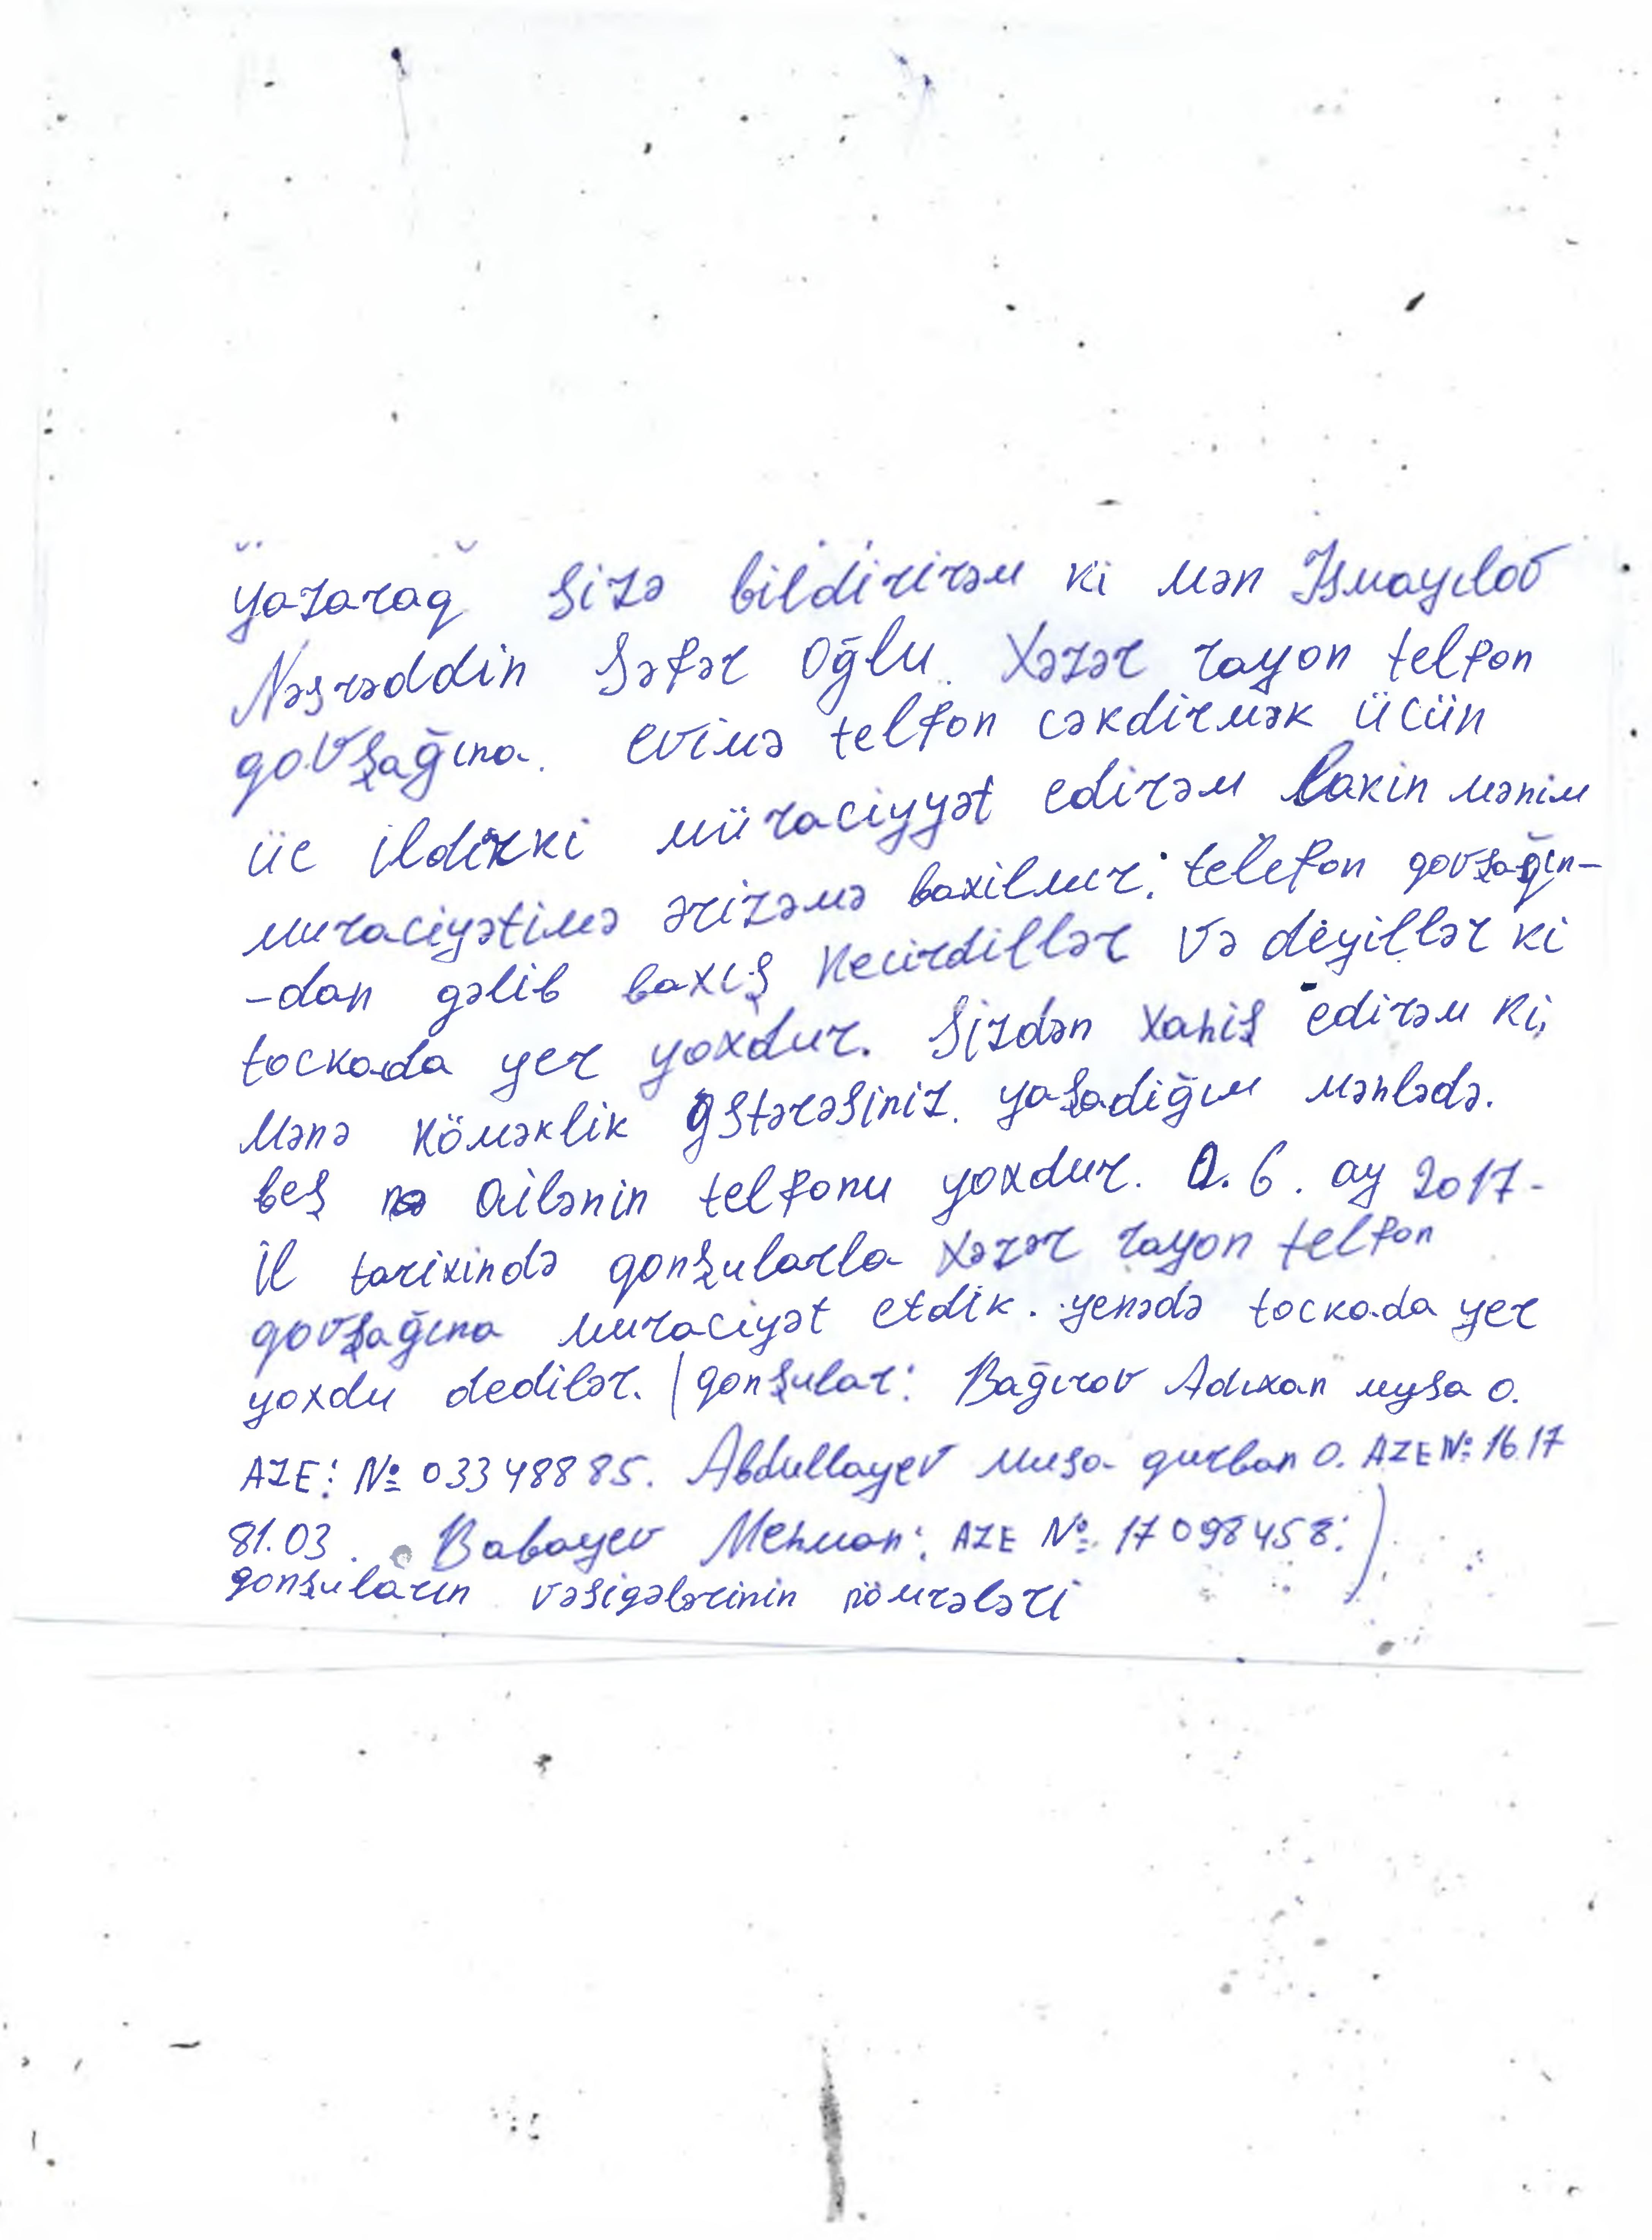 yazaraq sizə bildirirəm ki mən Ismayılov
Nəsrəddin Səfər oğlu. Xəzər rayon telfon
qovşağına. evimə telfon cəkdirmək ücün
üc ildirki müraciyyət edirəm lakin mənim
muraciyətimə ərizəmə baxilmır. telefon qovşağın-
-dan gəlib baxış kecirdillər və deyillər ki
tockada yer yoxdur. Sizdən xahiş edirəm ki,
mənə köməklik göstərəsiniz. yaşadiğım məhlədə.
beş ailənin telfonu yoxdur. 2. 6. ay 2017-
il tarixində qonşularla Xəzər rayon telfon
qovşağına muraciyət etdik. yenədə tockada yer
yoxdu dedilər. (qonşular: Bağırov Adıxan Musa o.
AZE: № 03348885. Abdullayev Musa qurban o. AZE № 16.17
81.03. Babayev Mehman: AZE №. 17098458:)
qonşuların vəsiqələrinin nömrələri